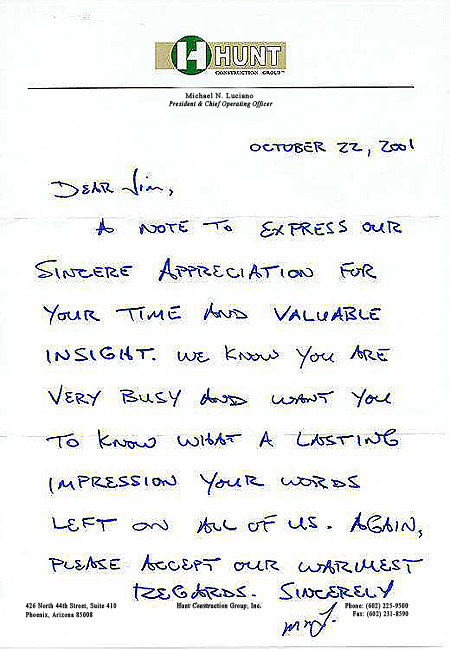 H HUNT
CONSTRUCTION GROUP™
Michael N. Luciano
President & Chief Operating Officer
OCTOBER 22, 2001
DEAR JIM,
A NOTE TO EXPRESS OUR
SINCERE APPRECIATION FOR
YOUR TIME AND VALUABLE
INSIGHT. WE KNOW YOU ARE
VERY BUSY AND WANT YOU
TO KNOW WHAT A LASTING
IMPRESSION YOUR WORDS
LEFT ON ALL OF US. AGAIN,
PLEASE ACCEPT OUR WARMEST
REGARDS. SINCERELY
426 North 44th Street, Suite 410
Phoenix, Arizona 85008
Hunt Construction Group, Inc.
Phone: (602) 225-9500
Fax: (602) 231-8590